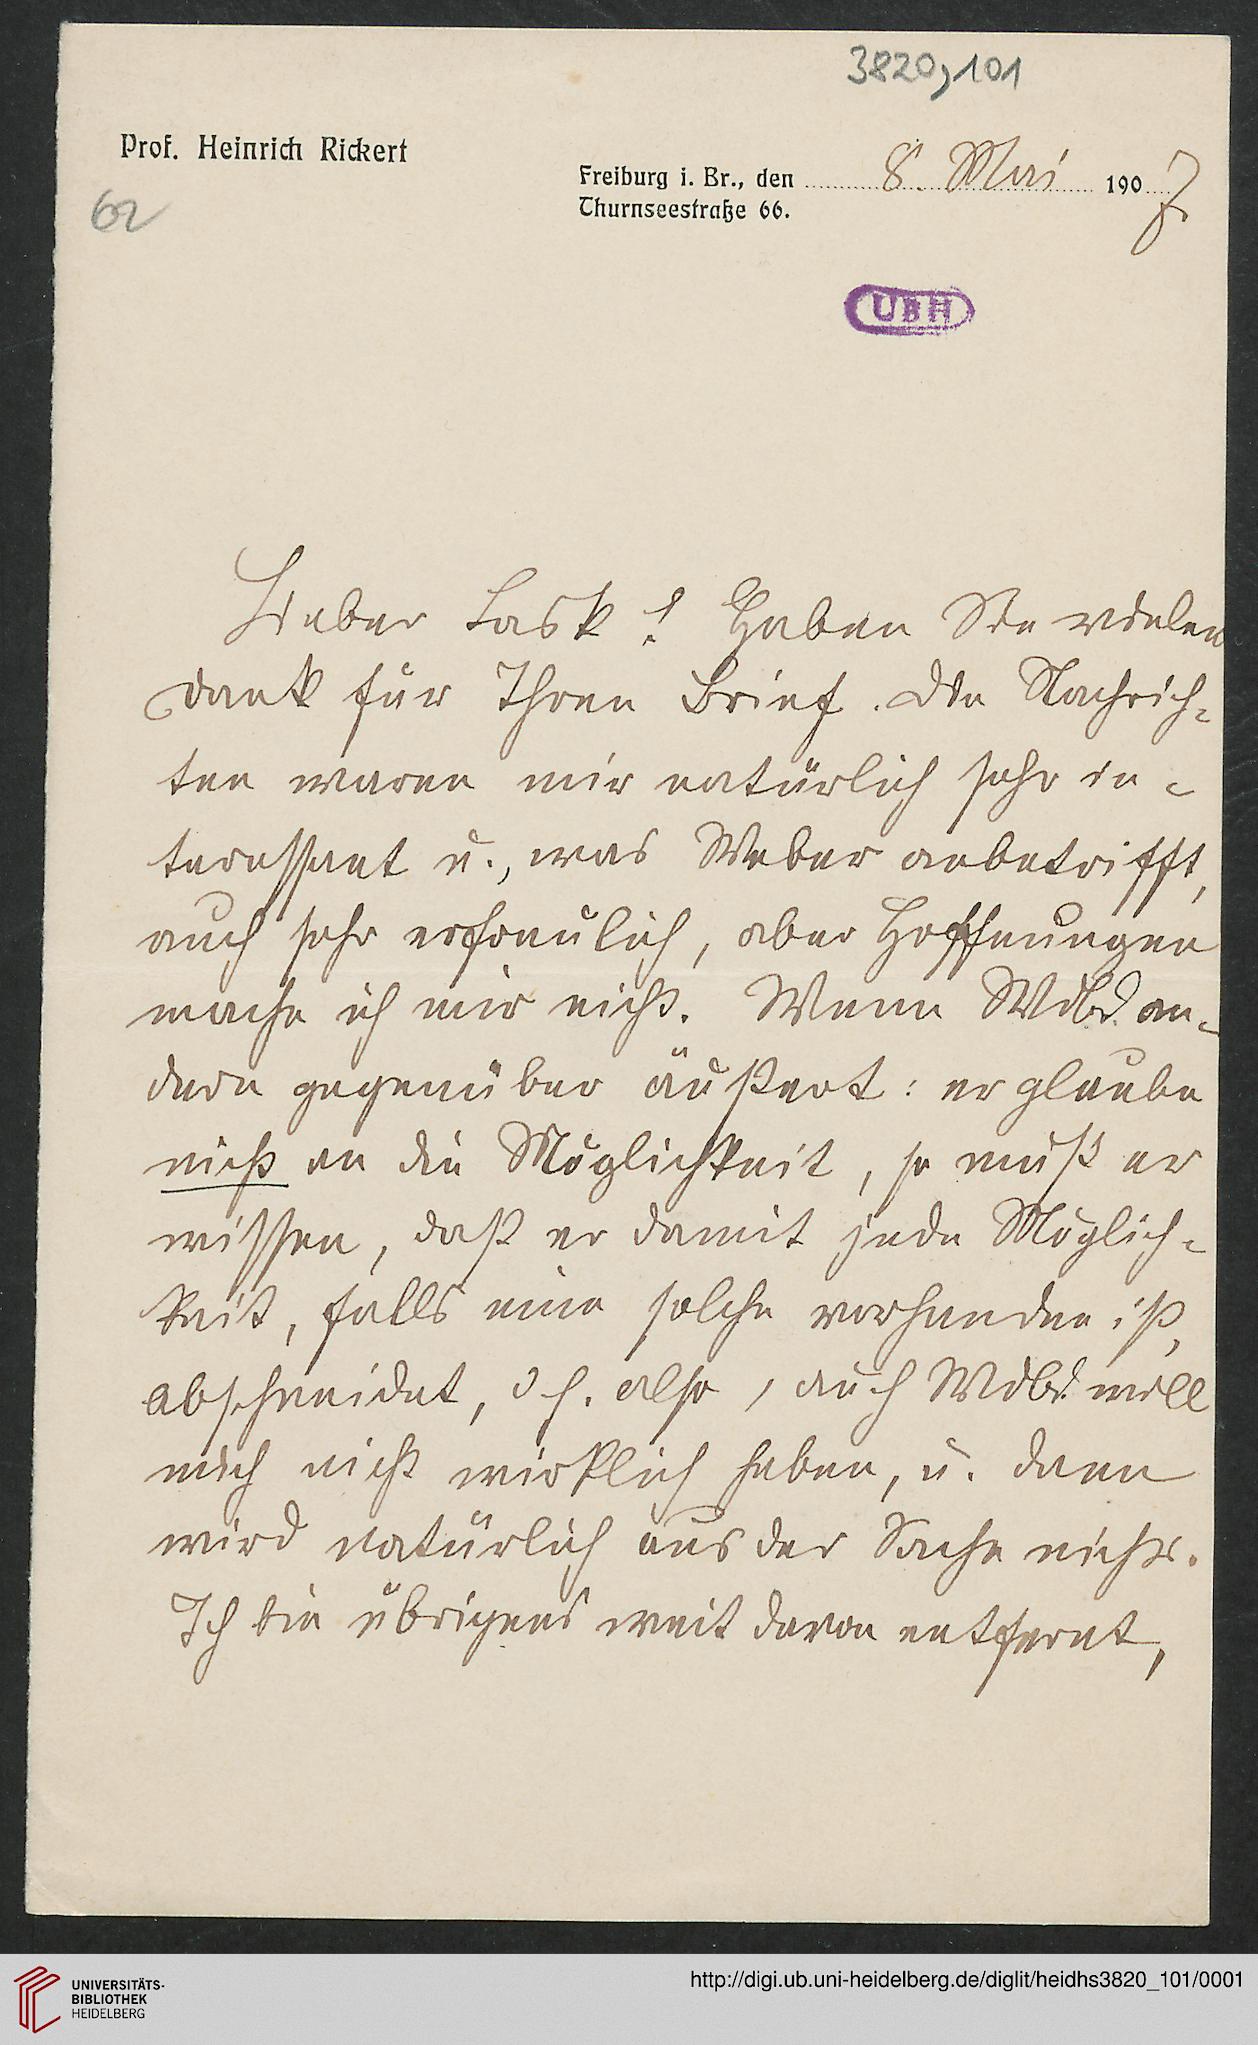 3820,101
Prof. Heinrich Rickert
Freiburg i. Br., den 8. Mai 1907
Thurnseestraße 66.
62
UBH
Lieber Lask! Haben Sie vielen
Dank für Ihren Brief. Die Nachrich-
ten waren mir natürlich sehr in-
teressant u., was Weber anbetrifft,
auch sehr erfreulich, aber Hoffnungen
mache ich mir nicht. Wenn Wdbd. an-
dern gegenüber äußert: er glaube
nicht an die Möglichkeit, so muß er
wissen, daß er damit jede Möglich-
keit, falls eine solche vorhanden ist,
abschneidet, d h. also, auch Wdbd. will
mich nicht wirklich haben, u. dann
wird natürlich aus der Sache nichts.
Ich bin übrigens weit davon entfernt,
UNIVERSITÄTS-
BIBLIOTHEK
HEIDELBERG
http://digi.ub.uni-heidelberg.de/diglit/heidhs3820_101/0001